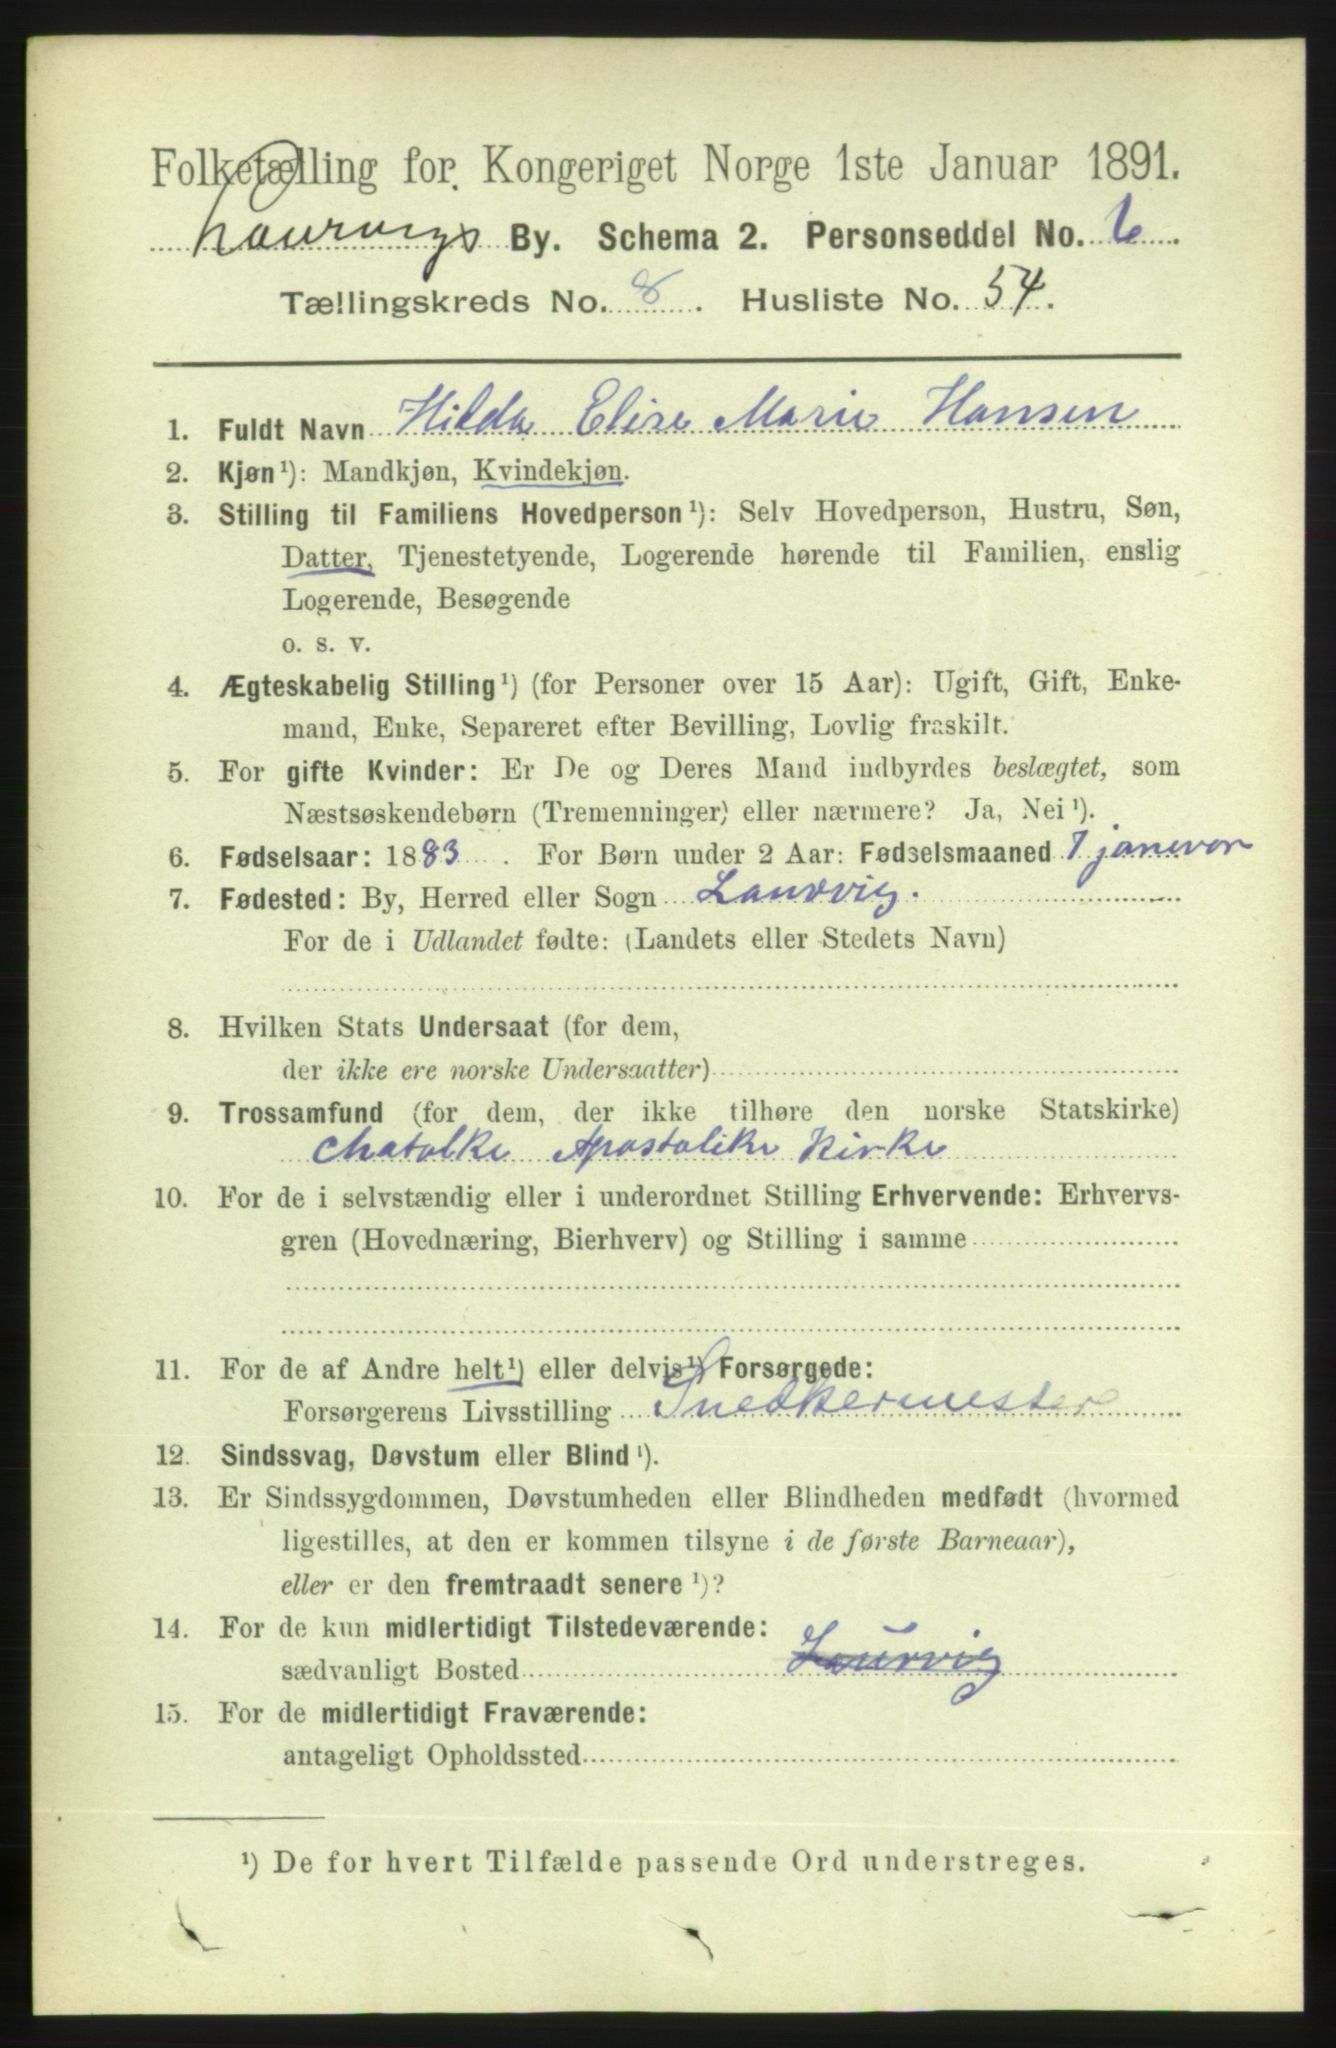 Folketælling for Kongeriget Norge 1ste Januar 1891.
Laurvigs By. Schema 2. Personseddel No. 6.
Tællingskreds No. 8. Husliste No. 54.
1. Fuldt Navn Hilda Elise Marie Hansen
2. Kjøn¹): Mandkjøn, Kvindekjøn.
3. Stilling til Familiens Hovedperson¹): Selv Hovedperson, Hustru, Søn,
Datter, Tjenestetyende, Logerende hørende til Familien, enslig
Logerende, Besøgende
o. s. v.
4. Ægteskabelig Stilling¹) (for Personer over 15 Aar): Ugift, Gift, Enke-
mand, Enke, Separeret efter Bevilling, Lovlig fraskilt.
5. For gifte Kvinder: Er De og Deres Mand indbyrdes beslægtet, som
Næstsøskendebørn (Tremenninger) eller nærmere? Ja, Nei¹).
6. Fødselsaar: 1883. For Børn under 2 Aar: Fødselsmaaned 7 januar
7. Fødested: By, Herred eller Sogn Laurvig.
For de i Udlandet fødte: (Landets eller Stedets Navn)
8. Hvilken Stats Undersaat (for dem,
der ikke ere norske Undersaatter)
9. Trossamfund (for dem, der ikke tilhøre den norske Statskirke)
Chatolke Apostolike Kirke
10. For de i selvstændig eller i underordnet Stilling Erhvervende: Erhvervs-
gren (Hovednæring, Bierhverv) og Stilling i samme
11. For de af Andre helt¹) eller delvis¹) Forsørgede:
Forsørgerens Livsstilling Snedkermester
12. Sindssvag, Døvstum eller Blind¹).
13. Er Sindssygdommen, Døvstumheden eller Blindheden medfødt (hvormed
ligestilles, at den er kommen tilsyne i de første Barneaar),
eller er den fremtraadt senere¹)?
14. For de kun midlertidigt Tilstedeværende:
sædvanligt Bosted Laurvig
15. For de midlertidigt Fraværende:
antageligt Opholdssted
¹) De for hvert Tilfælde passende Ord understreges.